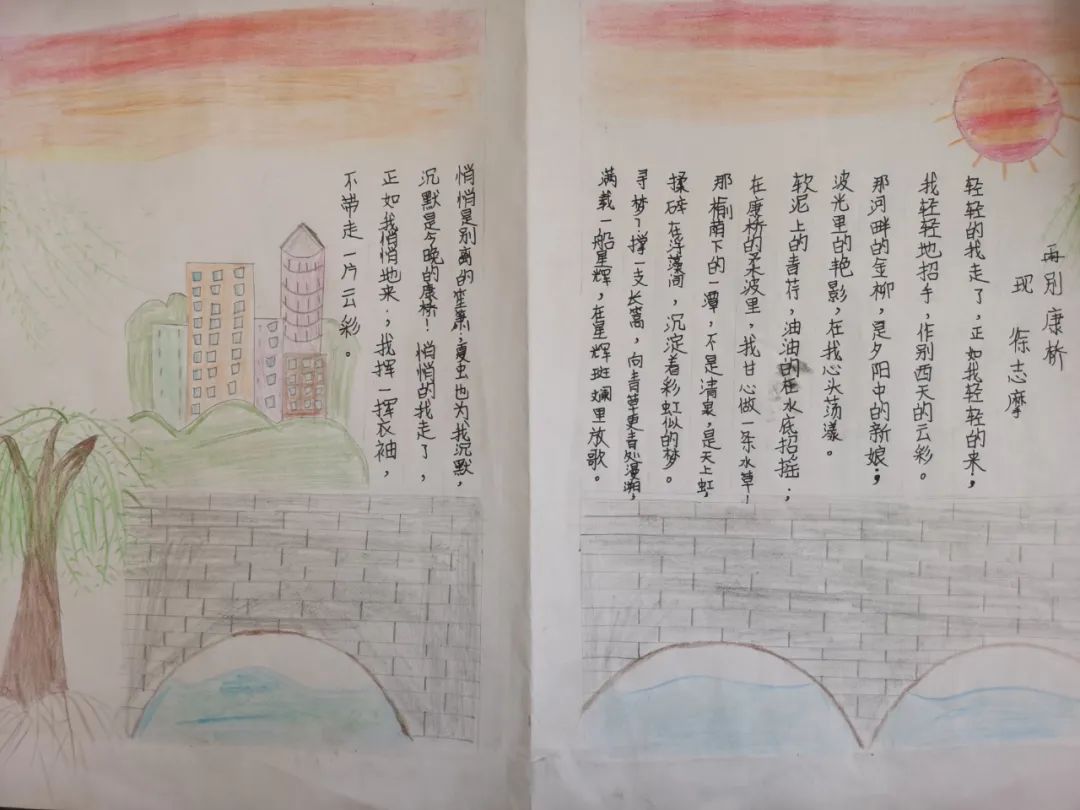 再别康桥
现 徐志摩
轻轻的我走了，正如我轻轻的来；
我轻轻地招手，作别西天的云彩。
那河畔的金柳，是夕阳中的新娘；
波光里的艳影，在我心头荡漾。
软泥上的青荇，油油的在水底招摇；
在康桥的柔波里，我甘心做一条水草！
那榆荫下的一潭，不是清泉，是天上虹，
揉碎在浮藻间，沉淀着彩虹似的梦。
寻梦？撑一支长篙，向青草更青处漫溯，
满载一船星辉，在星辉斑斓里放歌。
悄悄是别离的笙箫；夏虫也为我沉默，
沉默是今晚的康桥！悄悄的我走了，
正如我悄悄地来；，我挥一挥衣袖，
不带走一片云彩。